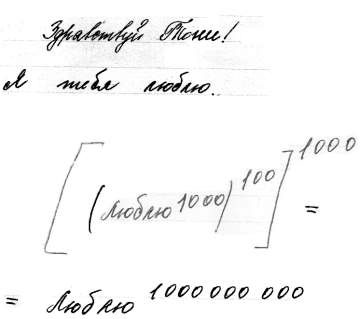 Здравствуй Тони!
Я тебя люблю.
[(Люблю^1000)^100]^1000 =
= Люблю^1000 000 000